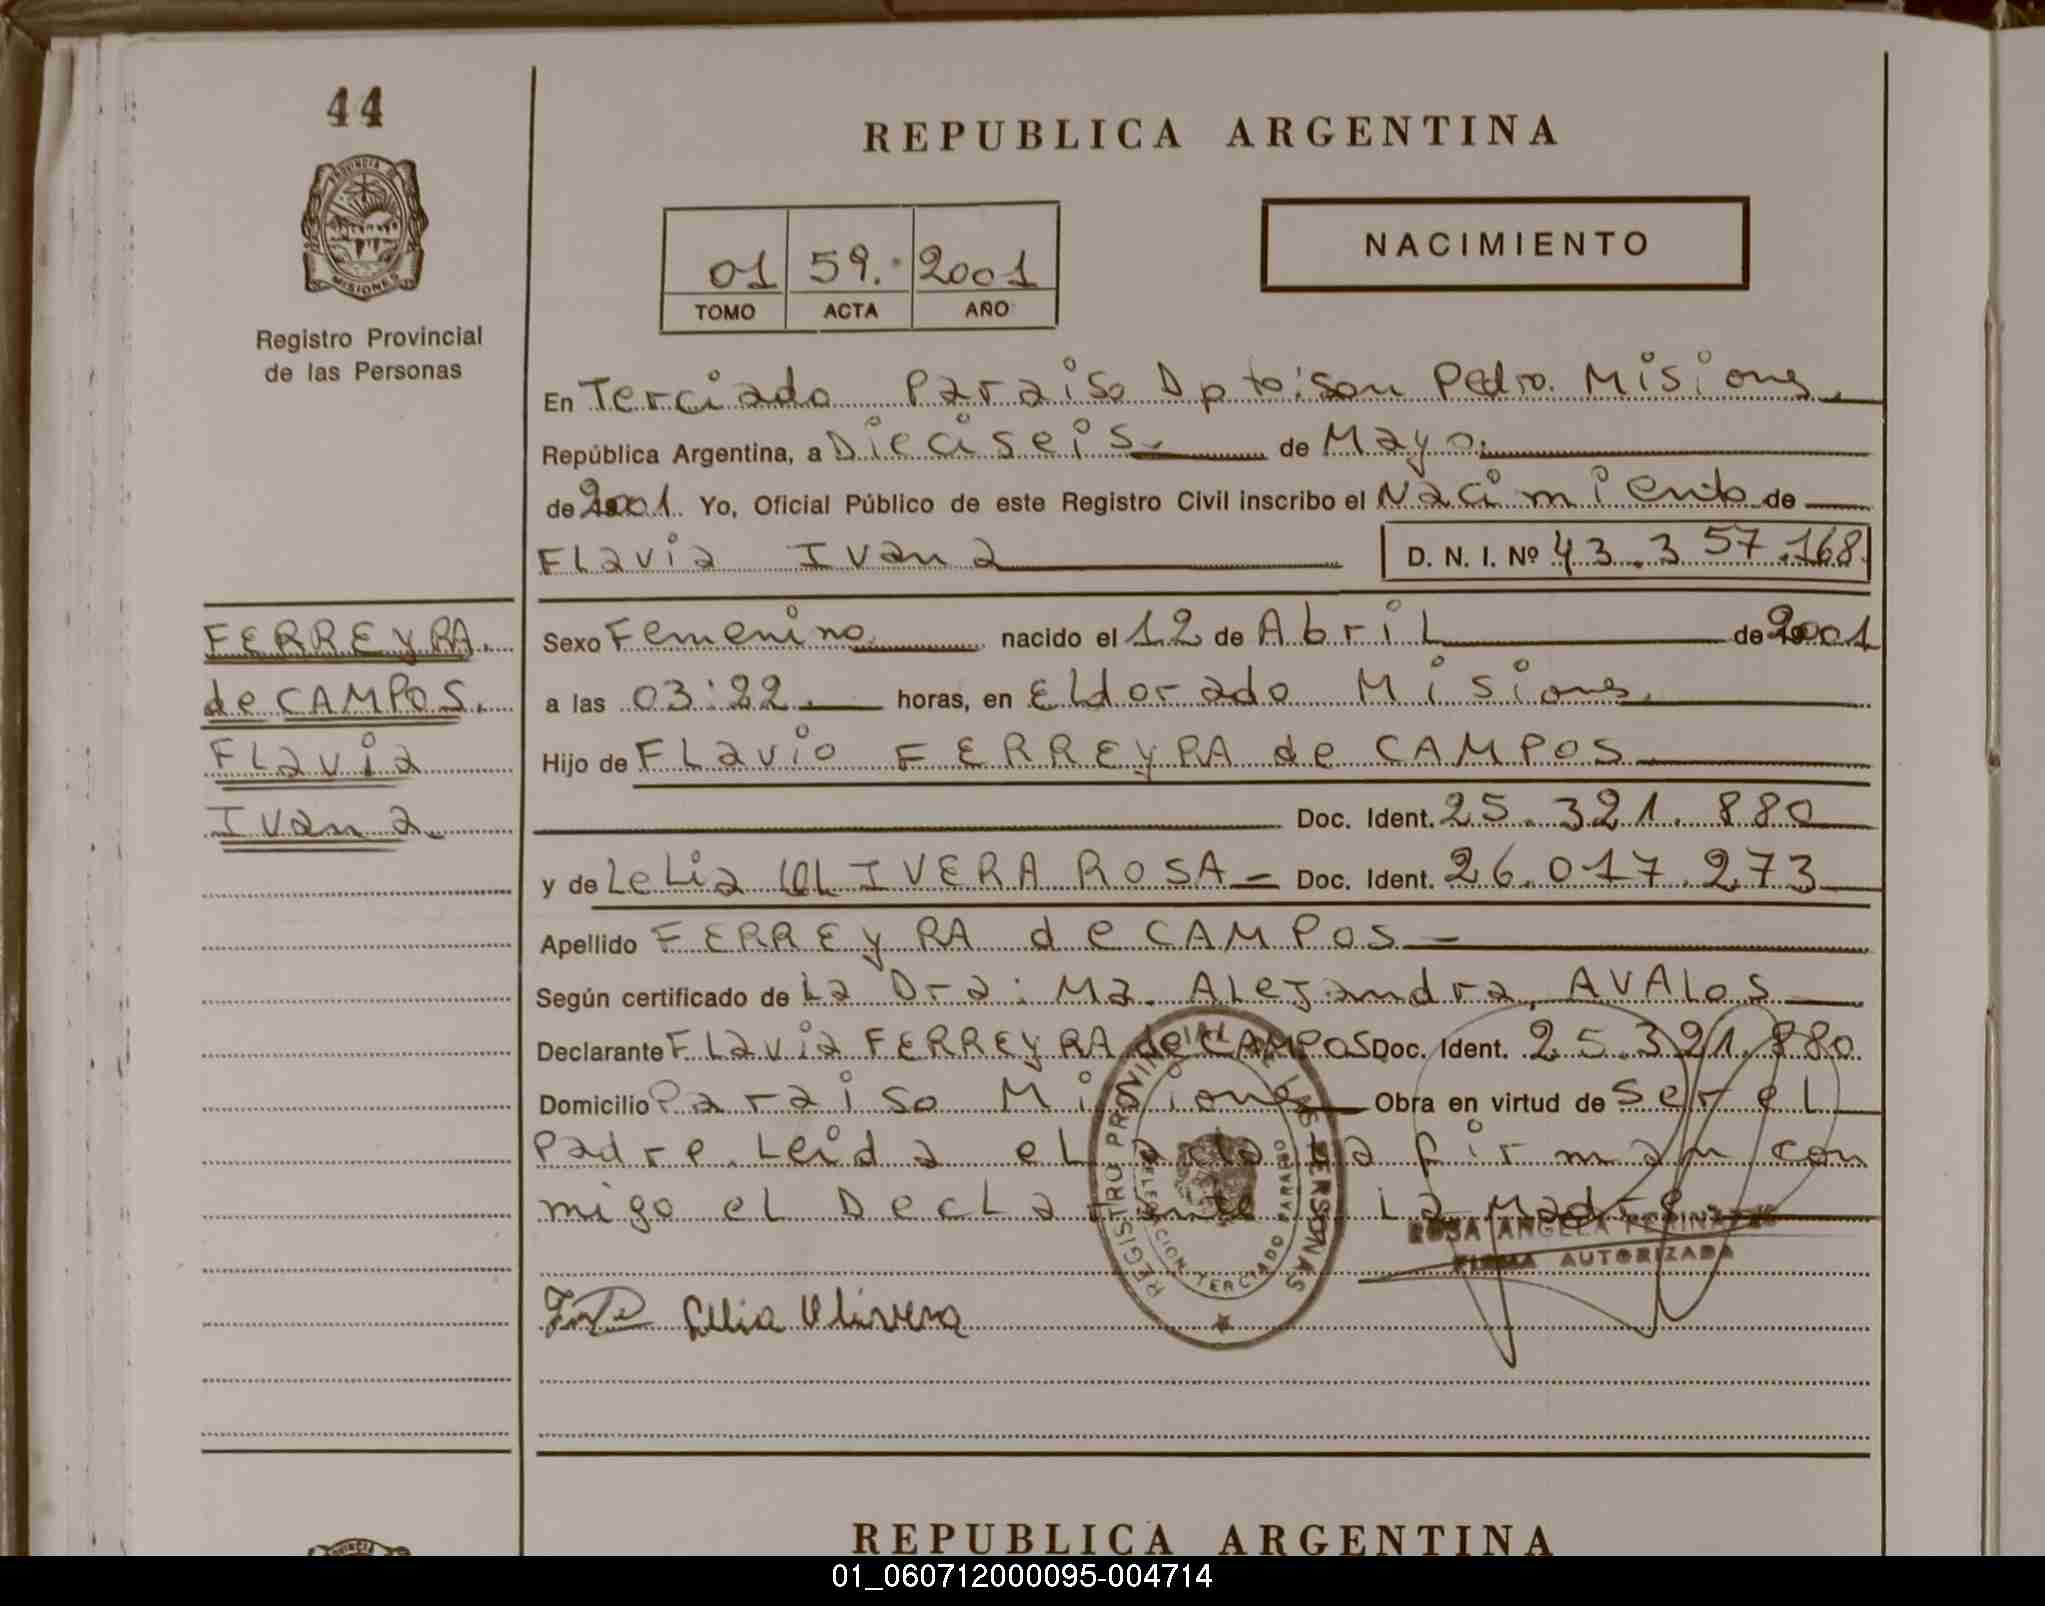 44
REPUBLICA ARGENTINA
PROVINCIA
MISIONES
Registro Provincial
de las Personas
NACIMIENTO
01 59. 2001
TOMO ACTA AÑO
En Terciado Paraiso Dpto: San Pedro. Misiones.
República Argentina, a Dieciseis. de Mayo.
de 2001. Yo, Oficial Público de este Registro Civil inscribo el Nacimiento de
Flavia Ivana D. N. I. Nº 43.357.168.
FERREYRA.
de CAMPOS.
Flavia
Ivana.
Sexo Femenino nacido el 12 de Abril de 2001
a las 03:22. horas, en Eldorado Misiones.
Hijo de Flavio FERREYRA de CAMPOS
Doc. Ident. 25.321.880
y de Lelia OLIVERA ROSA Doc. Ident. 26.017.273
Apellido FERREYRA de CAMPOS
Según certificado de La Dra: Ma. Alejandra, AVALOS
Declarante Flavia FERREYRA de CAMPOS Doc. Ident. 25.321.880
Domicilio Paraiso Misiones Obra en virtud de ser el
Padre. Leida el acta la firman con
migo el Declarante y la Madre.
REGISTRO PROVINCIAL DE LAS PERSONAS
DELEGACION TERCIADO PARAISO
ROSA ANGELA
FIRMA AUTORIZADA
Lelia Olivera
REPUBLICA ARGENTINA
PROVINCIA
01_060712000095-004714